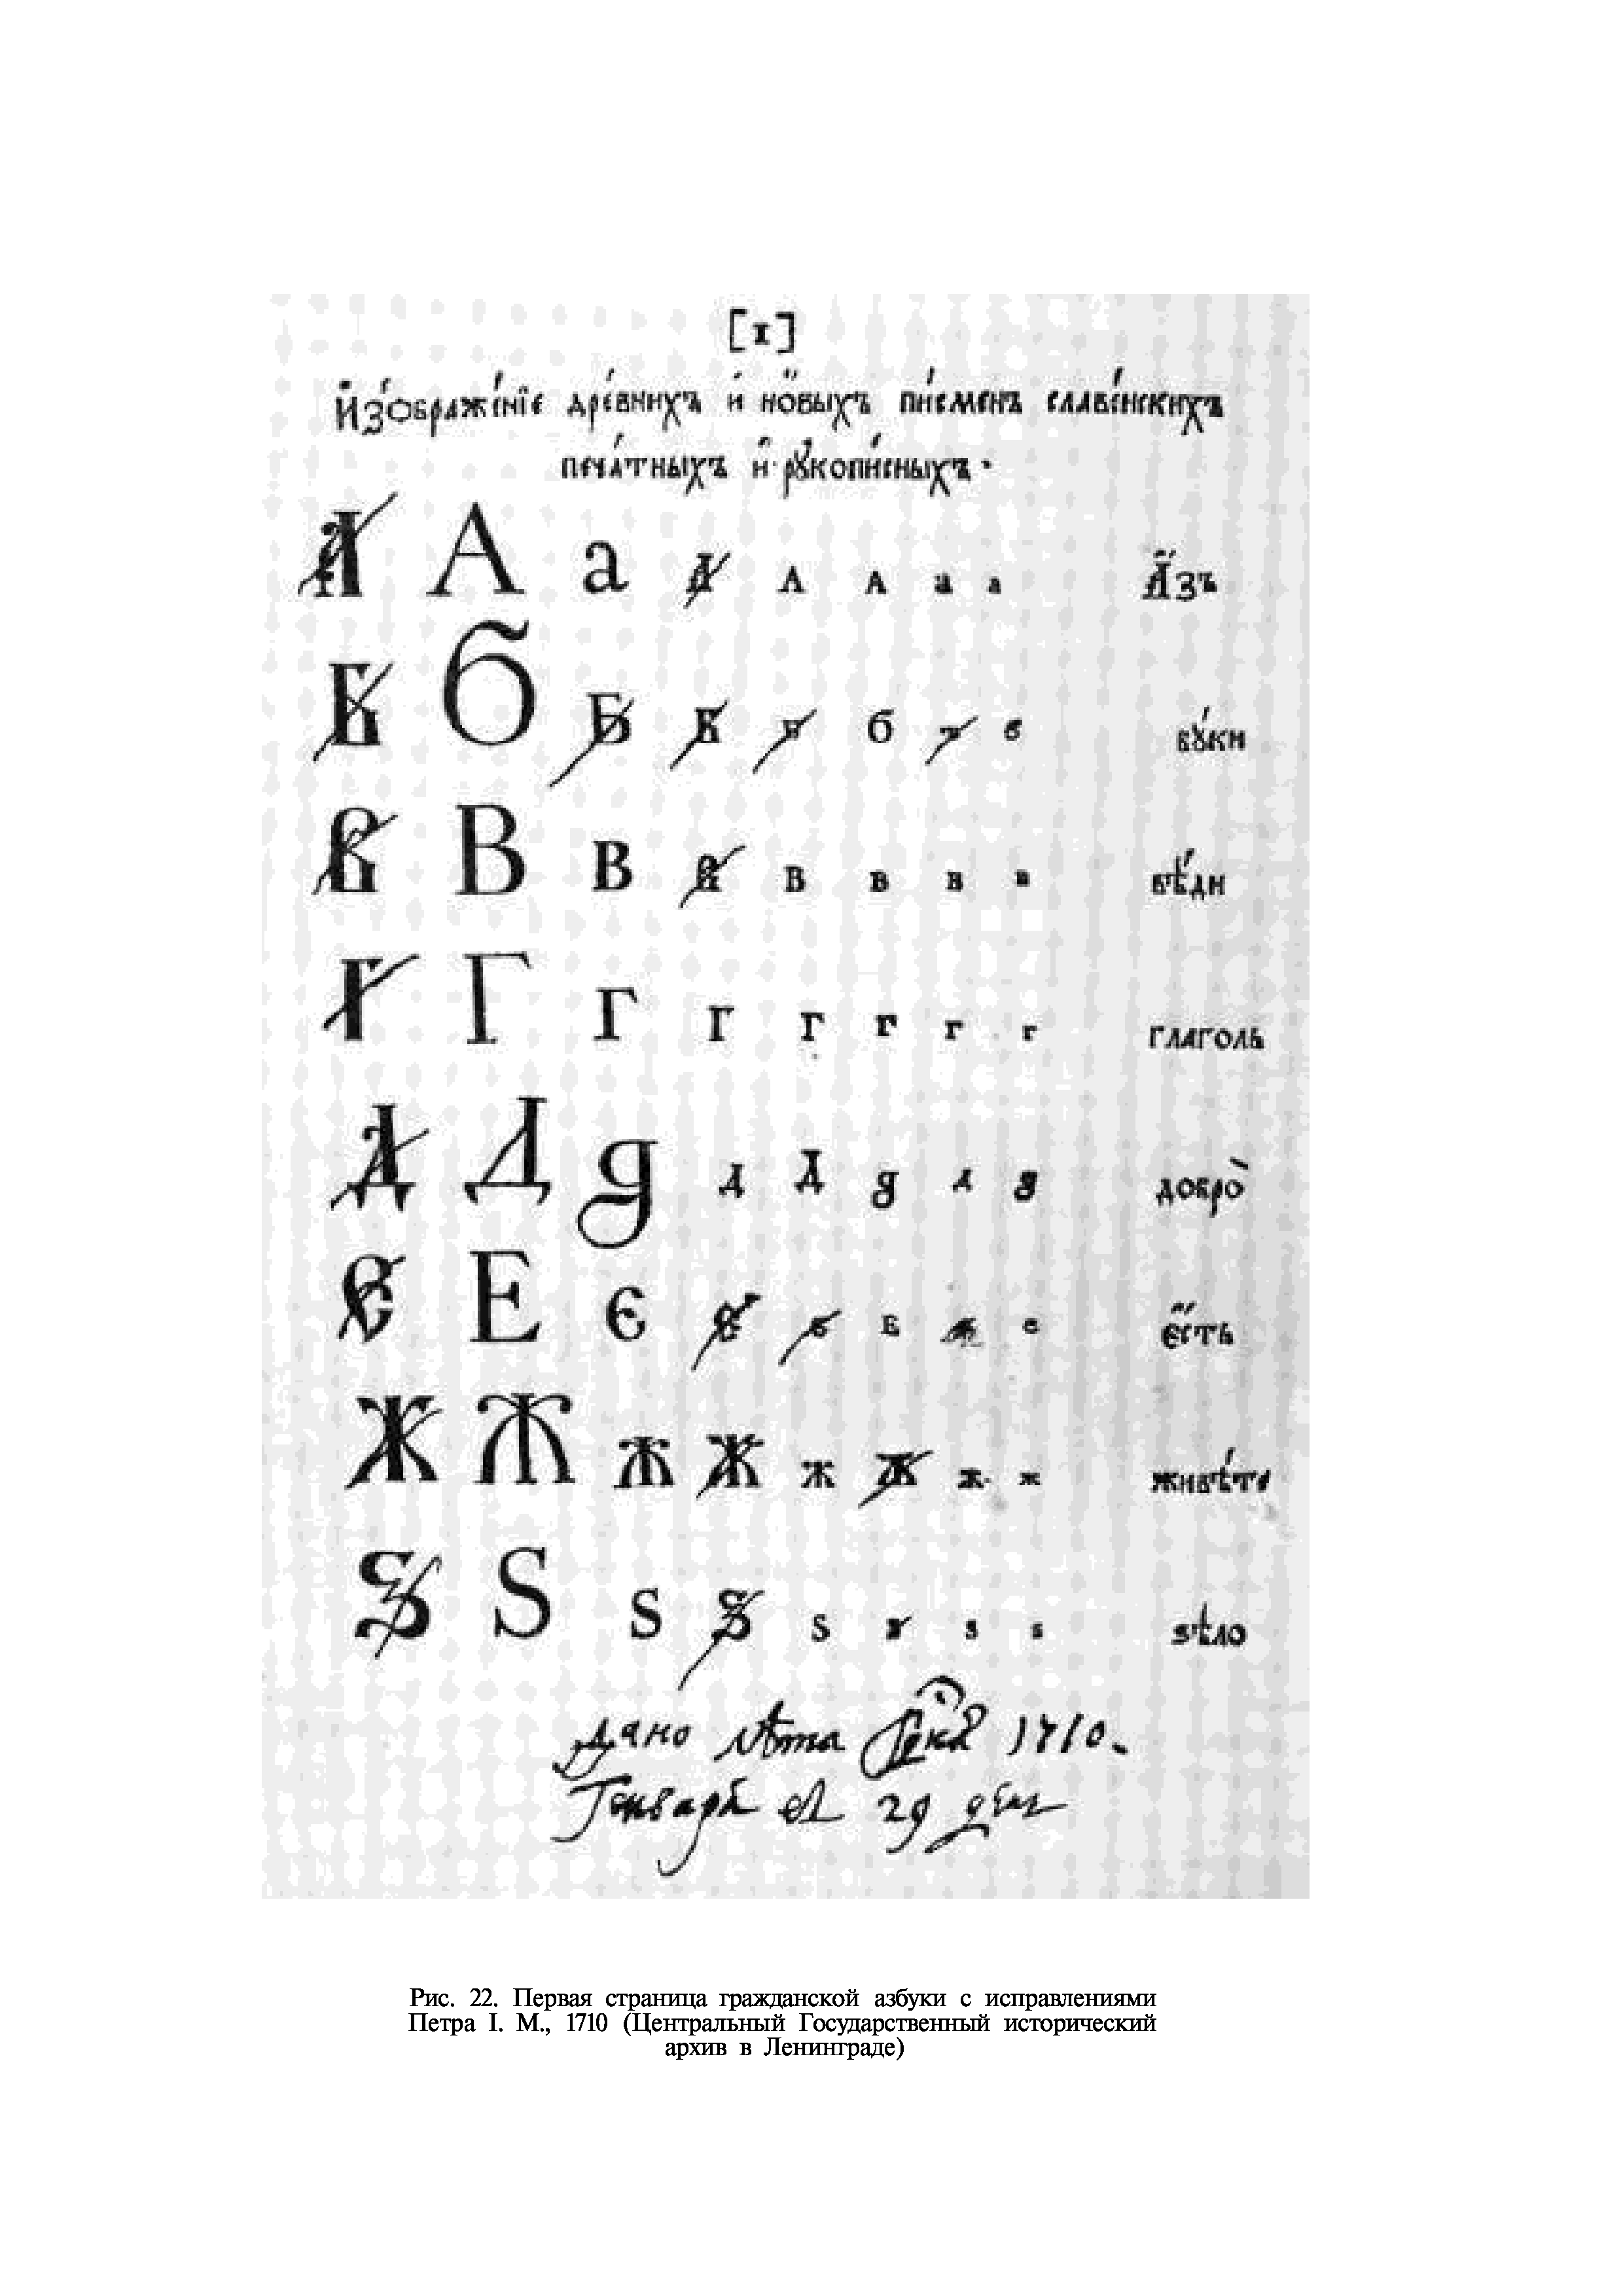 [1]
Изѡбраже́нїе дре́внихъ и҆ но́выхъ пи́сменъ славе́нскихъ
печа́тныхъ и҆ рꙋкопи́сныхъ.
А А а А А А а а А҆́зъ
Б Б Б Б Б б б б бꙋ́ки
В В В В В в в в вѣ́ди
Г Г Г Г Г г г г глаголь
Д Д д Д Д д д д добро̀
Е Е є Е Е Е е е є҆́сть
Ж Ж Ж Ж Ж Ж ж ж живѣ́те
Ѕ Ѕ Ѕ Ѕ Ѕ ѕ ѕ ѕ ѕѣло
Дано лѣта 1710.
Генваря в 29 день
Рис. 22. Первая страница гражданской азбуки с исправлениями
Петра I. М., 1710 (Центральный Государственный исторический
архив в Ленинграде)